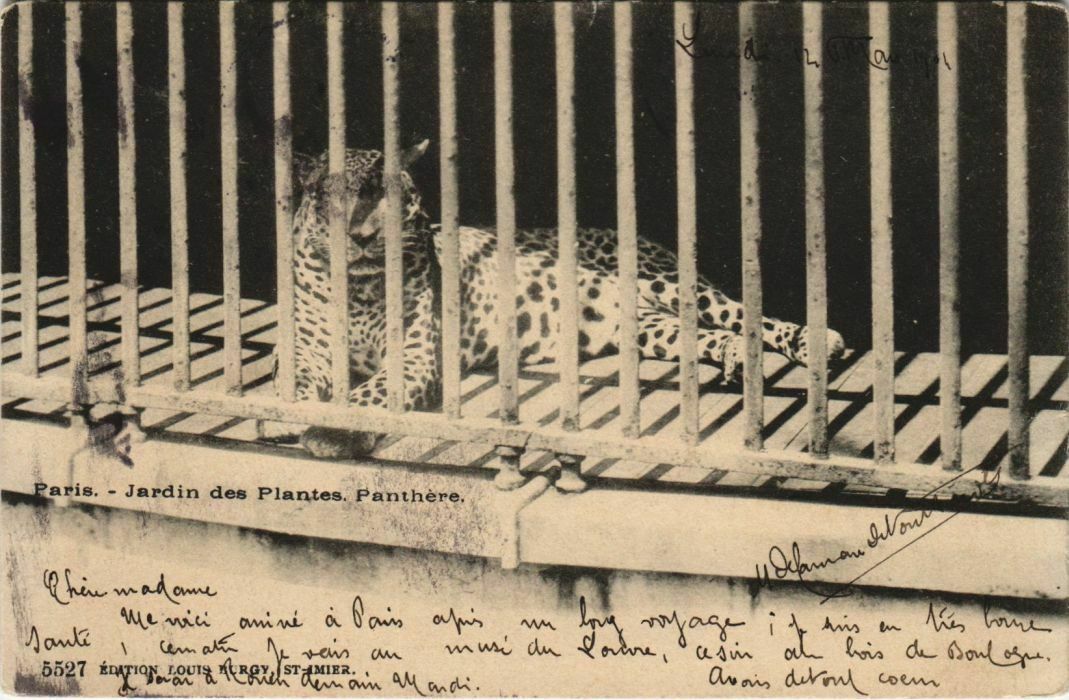 Lundi 12 Mai 1901
Paris. - Jardin des Plantes. Panthère.
Chère madame
Me voici arrivé à Paris après un long voyage ; je suis en très bonne
santé ; ce matin je vais au musé du Louvre, ce soir au bois de Boulogne.
5527 ÉDITION LOUIS BURGY, ST-IMIER.
Je serai à Rouen demain Mardi. à vous de tout coeur